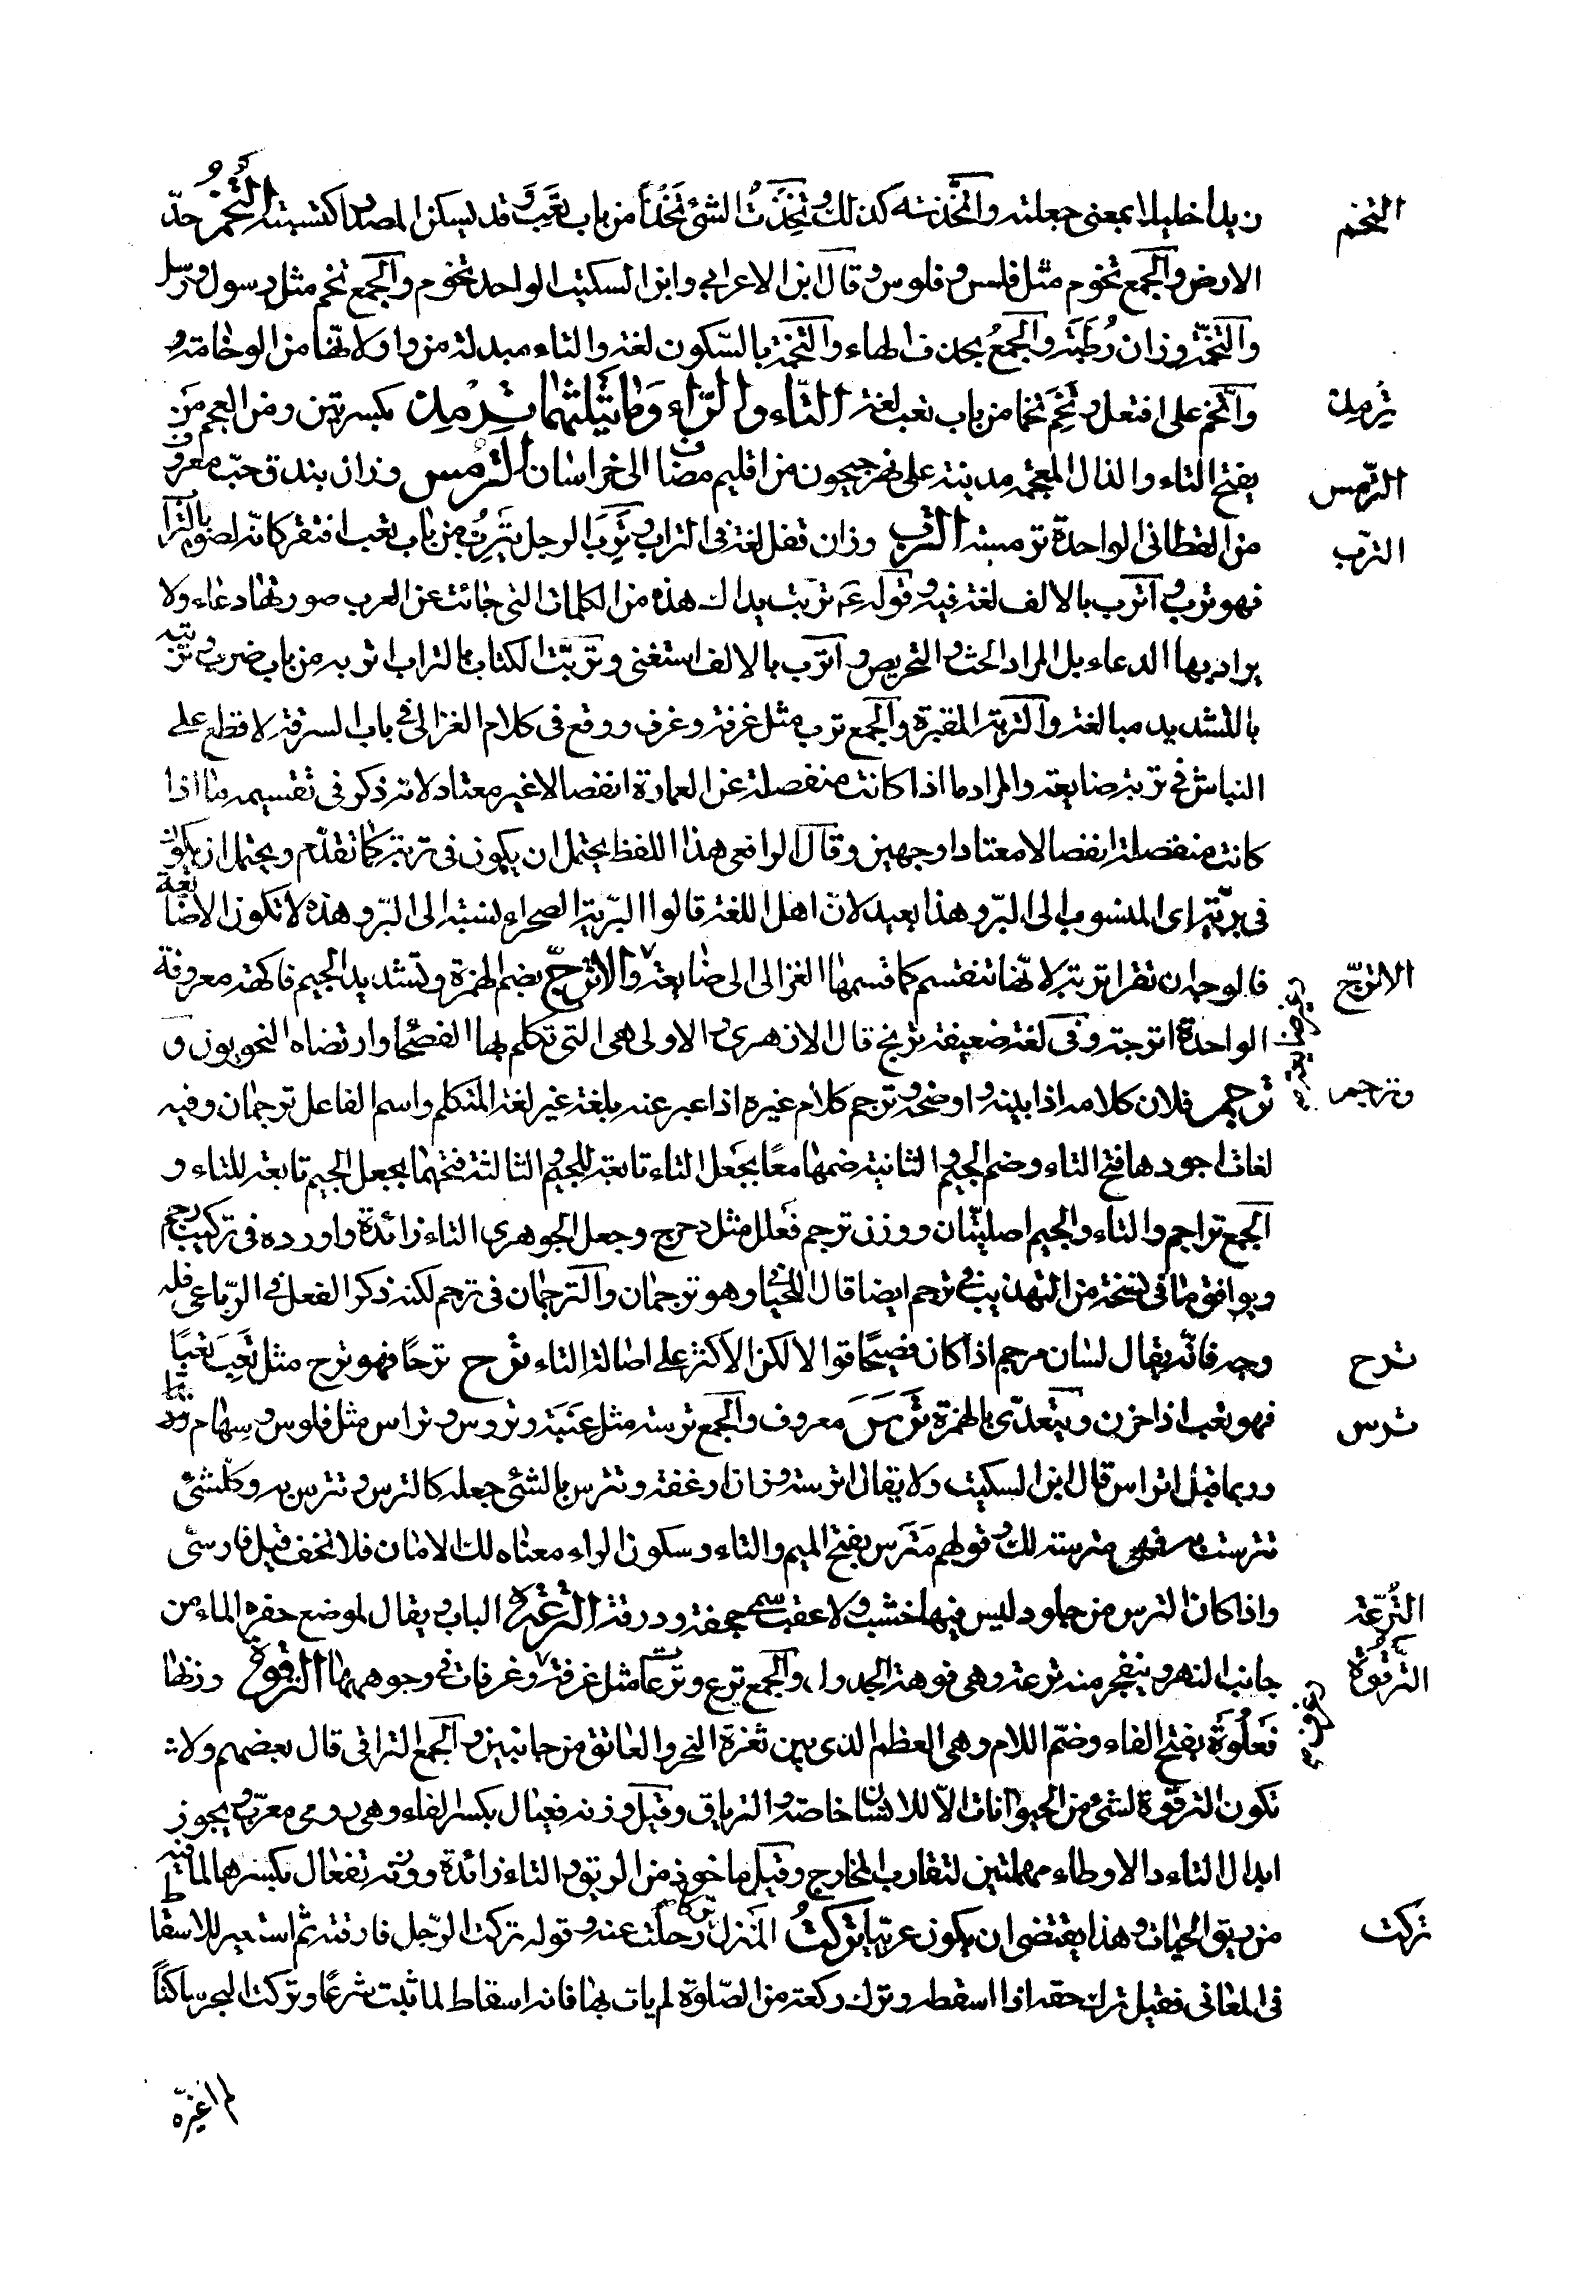 التخم
زيدا خليلا بمعنى جعلته واتّخذته كذلك وتَخِذْتُ الشئ تَخَذًا من باب تعَب وقد يسكن المصدر اكتسبته التُخم حدّ
الارض والجمع تخوم مثل فلس وفلوس وقال ابن الاعرابي وابن السكيت الواحد تخوم والجمع تخم مثل رسول ورسل
والتخمة وزان رُطَبَة والجمعُ بحذف الهاء والتخمة بالسّكون لغة والتاء مبدلة من واو لانّها من الوخامة و
ترمذ
واتّخم على افتعل وتَخِمَ تخما من باب تعب لغة التّاء والرّاء وَما يثلثهما ترمذ بكسرتين ومن العجم من
الترمس
يفتح التاء والذال المعجمة مدينة على نهر جيحون من اقليم مضاف الى خراسان الترمس وزان بندق حبّ معروف
الترب
من القطانى الواحدة ترمسة الترب وزان قفل لغة فى التراب وتَرِبَ الرجل يَتْرَبُ من باب تعب افتقر كانّه لصق بالتراب
فهو ترب واترب بالالف لغة فيه وقوله عم تربت يداك هذه من الكلمات التى جائت عن العرب صورتها دعاء ولا
يراد بها الدعاء بل المراد الحث والتحريص واترب بالالف استغنى وتربت الكتاب بالتراب اتربه من باب ضرب وتربته
بالتشديد مبالغة والتربة المقبرة والجمع ترب مثل غرفة وغرف ووقع فى كلام الغزالى فى باب السرقة لا قطع على
النباش فى تربة ضايعة والمراد ما اذا كانت منفصلة عن العمارة انفصالا غير معتاد لانه ذكر فى تقسيمه ما اذا
كانت منفصلة انفصالا معتادا وجهين وقال الرافعى هذا اللفظ يحتمل ان يكون فى تربة كما تقدّم ويحتمل ان يكون
فى بريّة اى المنسوب الى البرّ وهذا بعيد لانّ اهل اللغة قالوا البرّية الصحراء نسبة الى البرّ وهذه لا تكون الا ضايعة
الاترجّ
فالوجه ان تقرا تربة لانّها تنقسم كما قسمها الغزالى الى ضايعة والاترجّ بضم الهمزة وتشديد الجيم فاكهة معروفة
وغير ضايعة
الواحدة اترجة وفى لغة ضعيفة ترنج قال الازهرى والاولى هى التى تكلم بها الفصحا وارتضاه النحويون و
وترجم
ترجم فلان كلامه اذا بينه واوضحه وترجم كلام غيره اذا عبر عنه بلغة غير لغة المتكلم واسم الفاعل ترجمان وفيه
لغات اجودها فتح التاء وضم الجيم والثانية ضمهما معًا بجعل التاء تابعة للجيم والثالثة فتحهما بجعل الجيم تابعة للتاء و
الجمع تراجم والتاء والجيم اصليّتان ووزن ترجم فَعلل مثل دحرج وجعل الجوهرى التاء زائدة واورده فى تركيب رجم
ويوافقه ما فى نسخة من التهذيب فى ترجم ايضا قال اللحيانى وهو ترجمان والترجمان فى ترجم لكنه ذكر الفعل فى الرّباعى فله
ترح
وجه فانّه يقال لسان مرجم اذا كان فصيحًا قوالا لكن الاكثر على اصالة التاء ترح ترحًا فهو ترح مثل تَعِبَ تعبًا
ترس
فهو تعب اذا حزن ويتعدّى بالهمزة تَرَسَ معروف والجمع ترسة مثل عِنَبَة وتروس وتراس مثل فلوس وسهام
وربما قيل اتراس قال ابن السكيت ولا يقال اترسة وزان ارغفة وتترس بالشئ جعله كالترس وتترس به وكل شئ
تترست به فهو مترسة لك وقولهم مَتَرس بفتح الميم والتاء وسكون الراء معناه لك الامان فلا تخف قيل فارسى
الترعة
واذا كان الترس من جلود ليس فيها خشب ولا عقب سمى جحفة ودرقة الترعة الباب ويقال لموضع حفره الماء من
الترقوة
جانب النهر ويتفجر منه ترعة وهى فوهة الجدول والجمع ترع وترعات مثل غرفة وغرفات فى وجوهها الترقوة وزنها
وغرف
فَعلُوَة بفتح الفاء وضمّ اللام وهى العظم الذى بين ثغرة النحر والعاتق من جانبين والجمع التراقى قال بعضهم ولا
تكون الترقوة لشئ من الحيوانات الا للانسان خاصة والترياق وقيل وزنه فيعال بكسر الفاء وهى رومى معرّب ويجوز
ابدال التاء دالا وطاء مهملتين لتقارب المخارج وقيل ماخوذ من الريق والتاء زائدة ووزنه تفعال بكسرها لما فيه
تركت
من ريق الحيات وهذا يقتضى ان يكون عربيّا تركتُ المنزل تركا رحلت عنه وقوله تركت الرّجل فارقته ثم استعير للاسقاط
فى المعانى فقيل ترك حقه اذا اسقطه وترك ركعة من الصّلوة لم يات بها فانه اسقاط لما ثبت شرعًا وتركت البحر ساكنًا
لم اغيّره